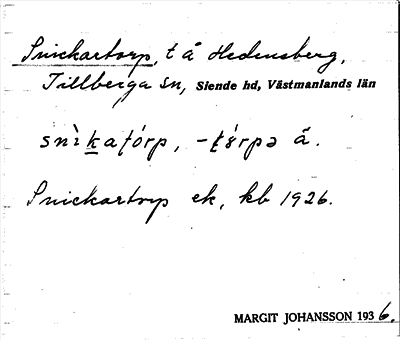 Snickartorp, t å Hedensberg,
Tillberga sn, Siende hd, Västmanlands län
snìkatórp, -tórpə ä.
Snickartorp ek, kb 1926.
MARGIT JOHANSSON 1936.